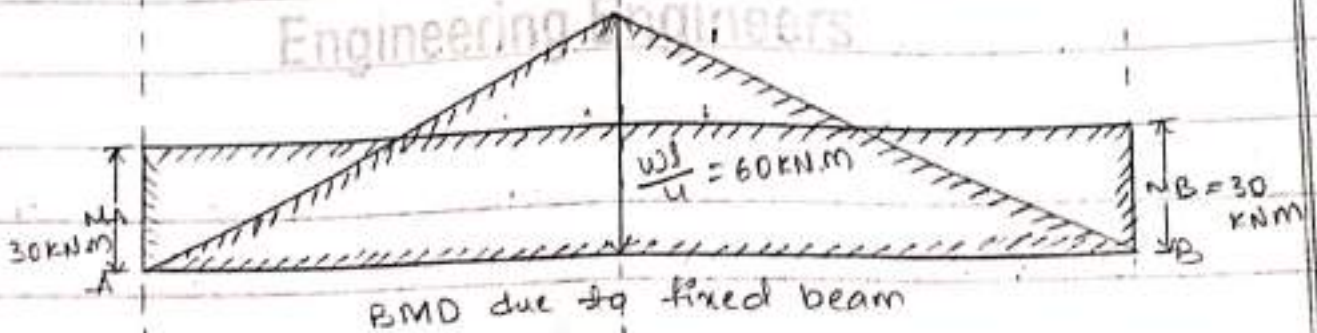 Engineering Engineers
wl/4 = 60KN.M
MA
30KNM
A
MB = 30
KNM
B
BMD due to fixed beam